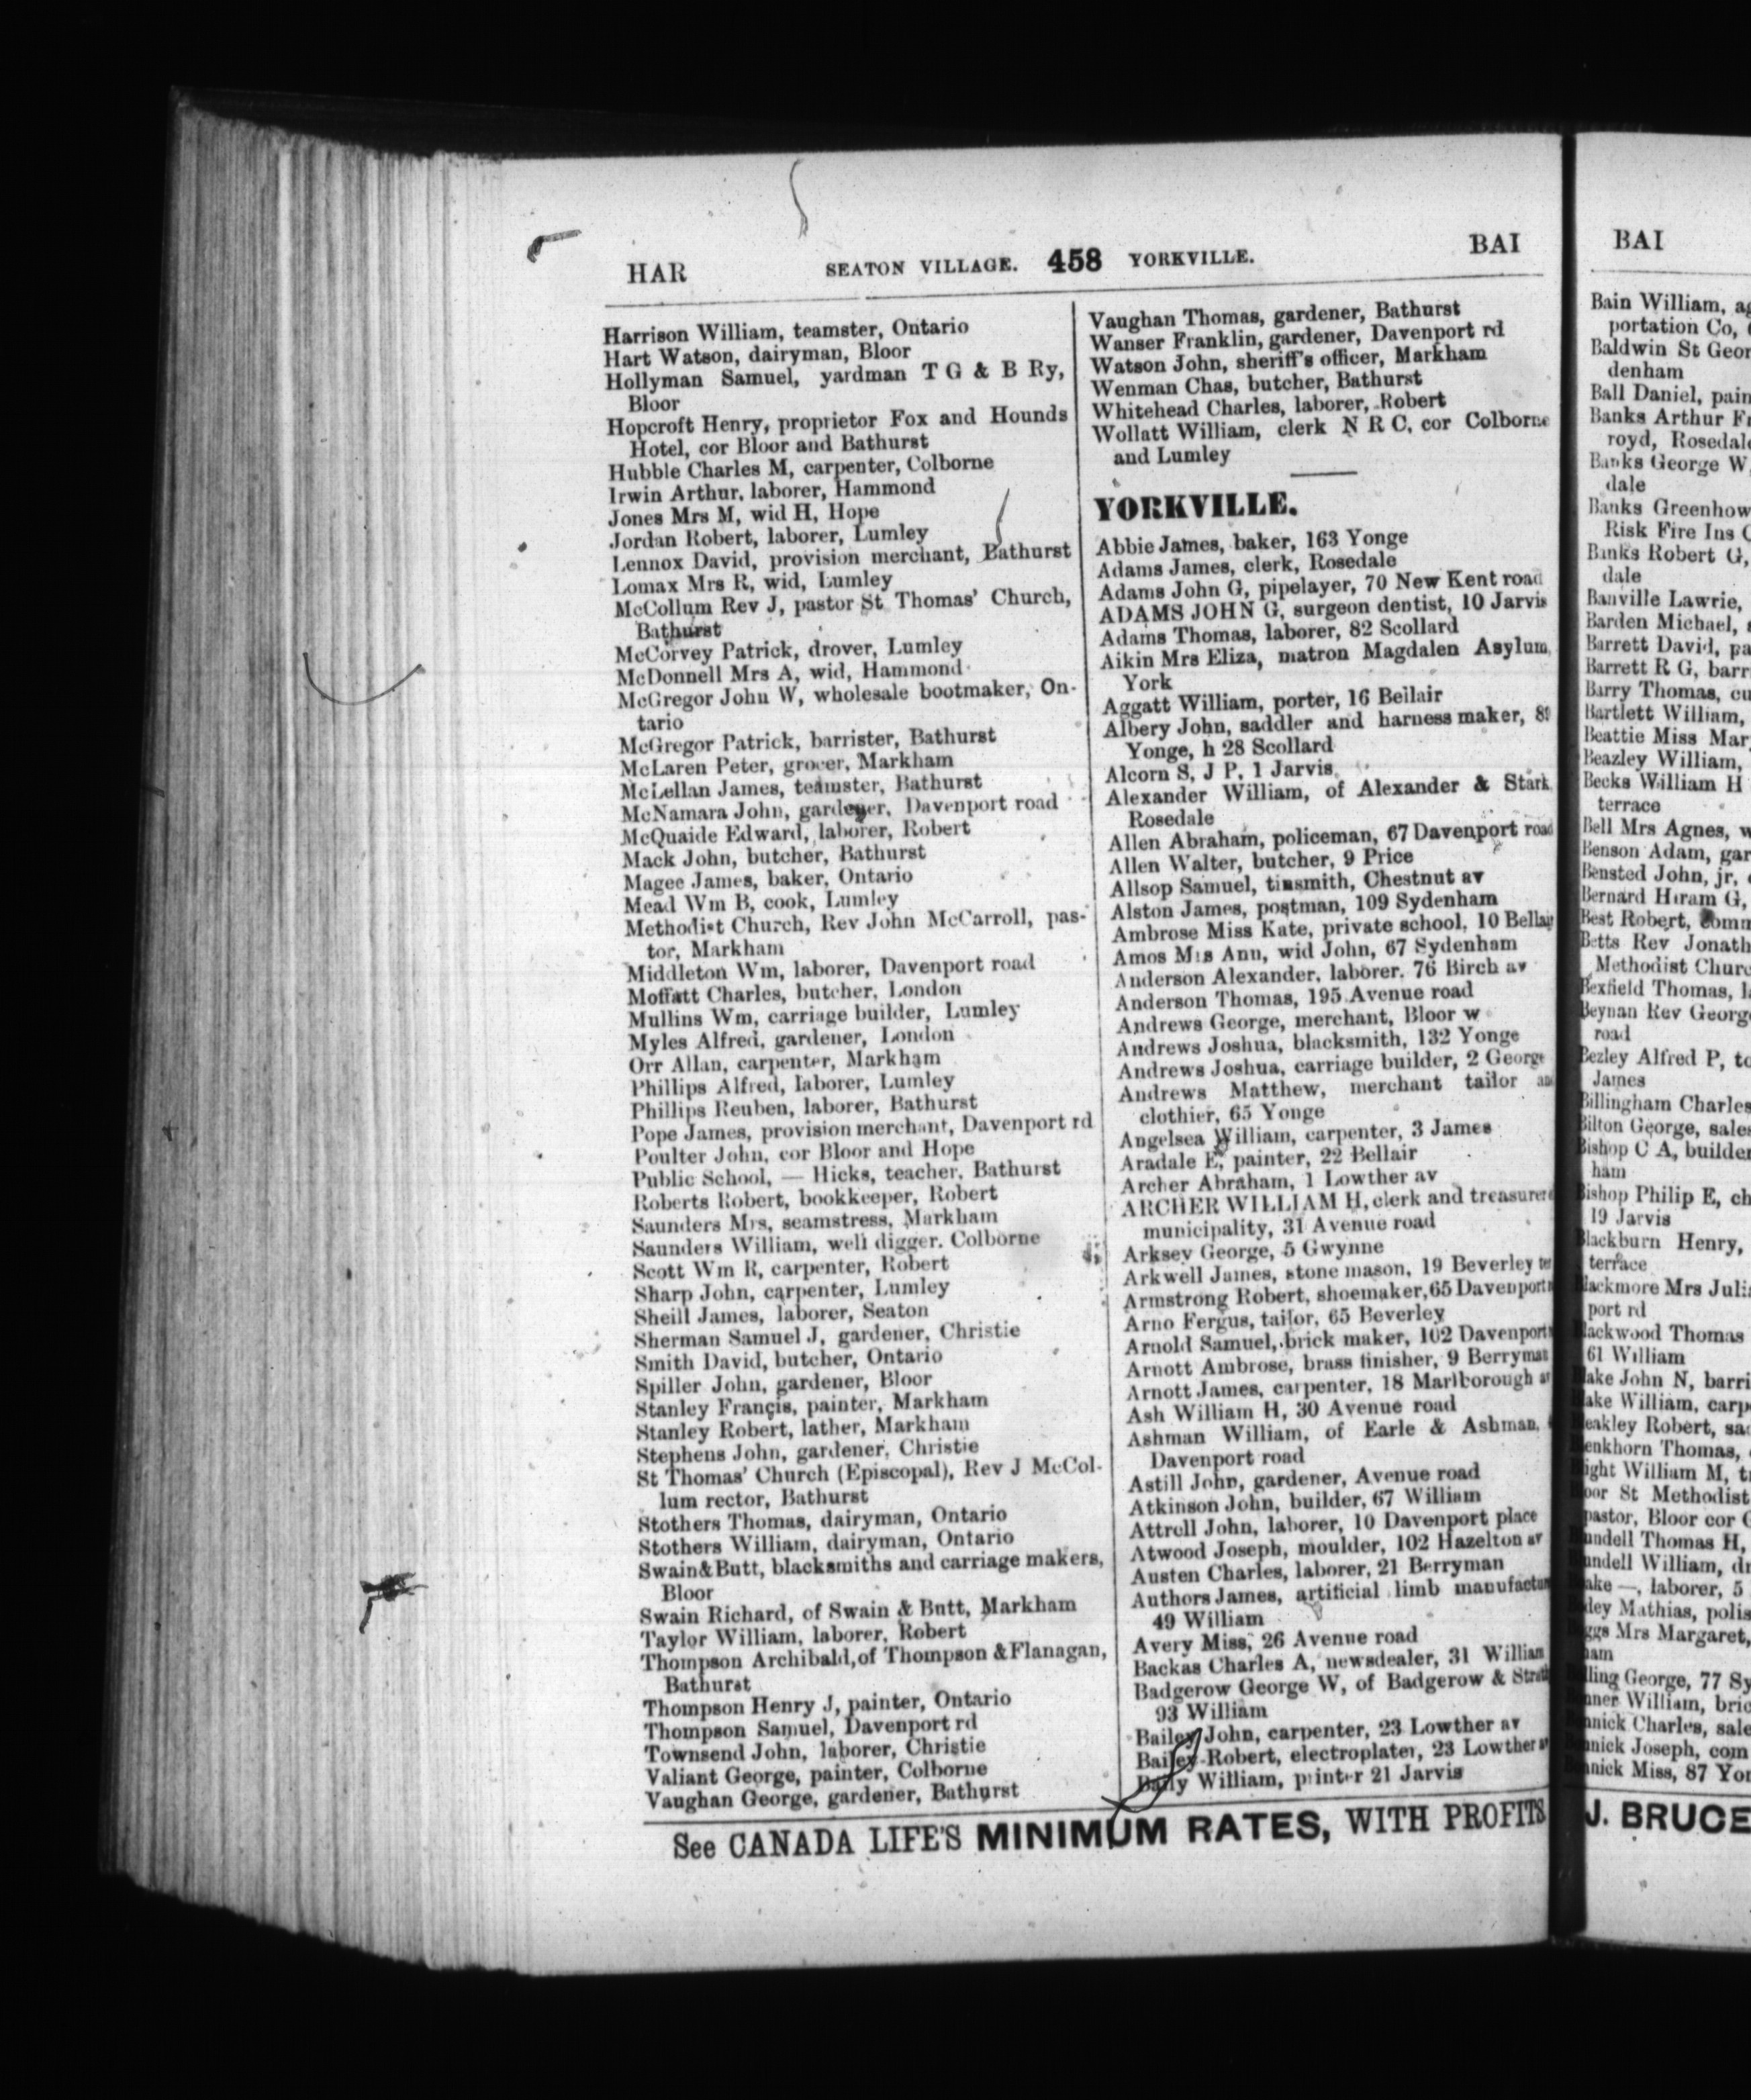 HAR
SEATON VILLAGE. 458 YORKVILLE.
BAI
Harrison William, teamster, Ontario
Hart Watson, dairyman, Bloor
Hollyman Samuel, yardman T G & B Ry,
Bloor
Hopcroft Henry, proprietor Fox and Hounds
Hotel, cor Bloor and Bathurst
Hubble Charles M, carpenter, Colborne
Irwin Arthur, laborer, Hammond
Jones Mrs M, wid H, Hope
Jordan Robert, laborer, Lumley
Lennox David, provision merchant, Bathurst
Lomax Mrs R, wid, Lumley
McCollum Rev J, pastor St Thomas' Church,
Bathurst
McCorvey Patrick, drover, Lumley
McDonnell Mrs A, wid, Hammond
McGregor John W, wholesale bootmaker, On-
tario
McGregor Patrick, barrister, Bathurst
McLaren Peter, grocer, Markham
McLellan James, teamster, Bathurst
McNamara John, gardener, Davenport road
McQuaide Edward, laborer, Robert
Mack John, butcher, Bathurst
Magee James, baker, Ontario
Mead Wm B, cook, Lumley
Methodist Church, Rev John McCarroll, pas-
tor, Markham
Middleton Wm, laborer, Davenport road
Moffatt Charles, butcher, London
Mullins Wm, carriage builder, Lumley
Myles Alfred, gardener, London
Orr Allan, carpenter, Markham
Phillips Alfred, laborer, Lumley
Phillips Reuben, laborer, Bathurst
Pope James, provision merchant, Davenport rd
Poulter John, cor Bloor and Hope
Public School, — Hicks, teacher, Bathurst
Roberts Robert, bookkeeper, Robert
Saunders Mrs, seamstress, Markham
Saunders William, well digger. Colborne
Scott Wm R, carpenter, Robert
Sharp John, carpenter, Lumley
Sheill James, laborer, Seaton
Sherman Samuel J, gardener, Christie
Smith David, butcher, Ontario
Spiller John, gardener, Bloor
Stanley Francis, painter, Markham
Stanley Robert, lather, Markham
Stephens John, gardener, Christie
St Thomas' Church (Episcopal), Rev J McCol-
lum rector, Bathurst
Stothers Thomas, dairyman, Ontario
Stothers William, dairyman, Ontario
Swain&Butt, blacksmiths and carriage makers,
Bloor
Swain Richard, of Swain & Butt, Markham
Taylor William, laborer, Robert
Thompson Archibald, of Thompson &Flanagan,
Bathurst
Thompson Henry J, painter, Ontario
Thompson Samuel, Davenport rd
Townsend John, laborer, Christie
Valiant George, painter, Colborne
Vaughan George, gardener, Bathurst
Vaughan Thomas, gardener, Bathurst
Wanser Franklin, gardener, Davenport rd
Watson John, sheriff's officer, Markham
Wenman Chas, butcher, Bathurst
Whitehead Charles, laborer, Robert
Wollatt William, clerk N R C, cor Colborne
and Lumley
YORKVILLE.
Abbie James, baker, 163 Yonge
Adams James, clerk, Rosedale
Adams John G, pipelayer, 70 New Kent road
ADAMS JOHN G, surgeon dentist, 10 Jarvis
Adams Thomas, laborer, 82 Scollard
Aikin Mrs Eliza, matron Magdalen Asylum,
York
Aggatt William, porter, 16 Bellair
Albery John, saddler and harness maker, 89
Yonge, h 28 Scollard
Alcorn S, J P, 1 Jarvis
Alexander William, of Alexander & Stark,
Rosedale
Allen Abraham, policeman, 67 Davenport road
Allen Walter, butcher, 9 Price
Allsop Samuel, tinsmith, Chestnut av
Alston James, postman, 109 Sydenham
Ambrose Miss Kate, private school, 10 Bellair
Amos Mrs Ann, wid John, 67 Sydenham
Anderson Alexander, laborer. 76 Birch av
Anderson Thomas, 195 Avenue road
Andrews George, merchant, Bloor w
Andrews Joshua, blacksmith, 132 Yonge
Andrews Joshua, carriage builder, 2 George
Andrews Matthew, merchant tailor and
clothier, 65 Yonge
Angelsea William, carpenter, 3 James
Aradale E, painter, 22 Bellair
Archer Abraham, 1 Lowther av
ARCHER WILLIAM H, clerk and treasurer
municipality, 31 Avenue road
Arksey George, 5 Gwynne
Arkwell James, stone mason, 19 Beverley ter
Armstrong Robert, shoemaker, 65 Davenport
Arno Fergus, tailor, 65 Beverley
Arnold Samuel, brick maker, 102 Davenport
Arnott Ambrose, brass finisher, 9 Berryman
Arnott James, carpenter, 18 Marlborough av
Ash William H, 30 Avenue road
Ashman William, of Earle & Ashman,
Davenport road
Astill John, gardener, Avenue road
Atkinson John, builder, 67 William
Attrell John, laborer, 10 Davenport place
Atwood Joseph, moulder, 102 Hazelton av
Austen Charles, laborer, 21 Berryman
Authors James, artificial limb manufactur
49 William
Avery Miss, 26 Avenue road
Backas Charles A, newsdealer, 31 William
Badgerow George W, of Badgerow & Strath
93 William
Bailey John, carpenter, 23 Lowther av
Bailey Robert, electroplater, 23 Lowther av
Baily William, printer 21 Jarvis
See CANADA LIFE'S MINIMUM RATES, WITH PROFITS
BAI
Bain William, ag
portation Co,
Baldwin St Geor
denham
Ball Daniel, pain
Banks Arthur Fr
royd, Rosedale
Banks George W,
dale
Banks Greenhow
Risk Fire Ins C
Banks Robert G,
dale
Banville Lawrie,
Barden Michael,
Barrett David, pa
Barrett R G, barr
Barry Thomas, cu
Bartlett William,
Beattie Miss Mar
Beazley William,
Becks William H
terrace
Bell Mrs Agnes, w
Benson Adam, gar
Bensted John, jr,
Bernard Hiram G,
Best Robert, comm
Betts Rev Jonath
Methodist Churc
Bexfield Thomas, l
Beynan Rev Georg
road
Bezley Alfred P, to
James
Billingham Charles
Bilton George, sale
Bishop C A, builder
ham
Bishop Philip E, ch
19 Jarvis
Blackburn Henry,
terrace
lackmore Mrs Juli
port rd
lackwood Thomas
61 William
lake John N, barri
lake William, carp
eakley Robert, sa
enkhorn Thomas,
ight William M, t
oor St Methodist
pastor, Bloor cor
undell Thomas H,
undell William, dr
ake —, laborer, 5
ley Mathias, polis
ggs Mrs Margaret,
ham
lling George, 77 Sy
nner William, bric
nnick Charles, sale
nnick Joseph, com
nnick Miss, 87 Yor
J. BRUCE